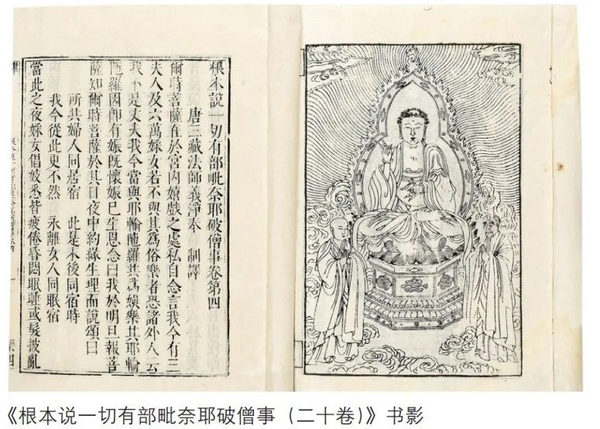 根本說一切有部毗奈耶破僧事卷第四
唐三藏法師義淨奉 制譯
爾時菩薩在於宮內嬉戲之處私自念言我今有三
夫人及六萬婇女若不與其爲俗樂者恐諸外人云
我不是丈夫我今當與耶輸陀羅共爲娛樂其耶輸
陀羅因即有娠既懷娠已生思念曰我於明旦報菩
薩知爾時菩薩於其日夜中約緣生理而說頌曰
所共婦人同居宿 此是末後同宿時
我今從此更不然 永離女人同眠宿
當此之夜婇女倡妓悉皆疲倦昏悶眠睡或髮披亂
《根本说一切有部毗奈耶破僧事（二十卷）》书影